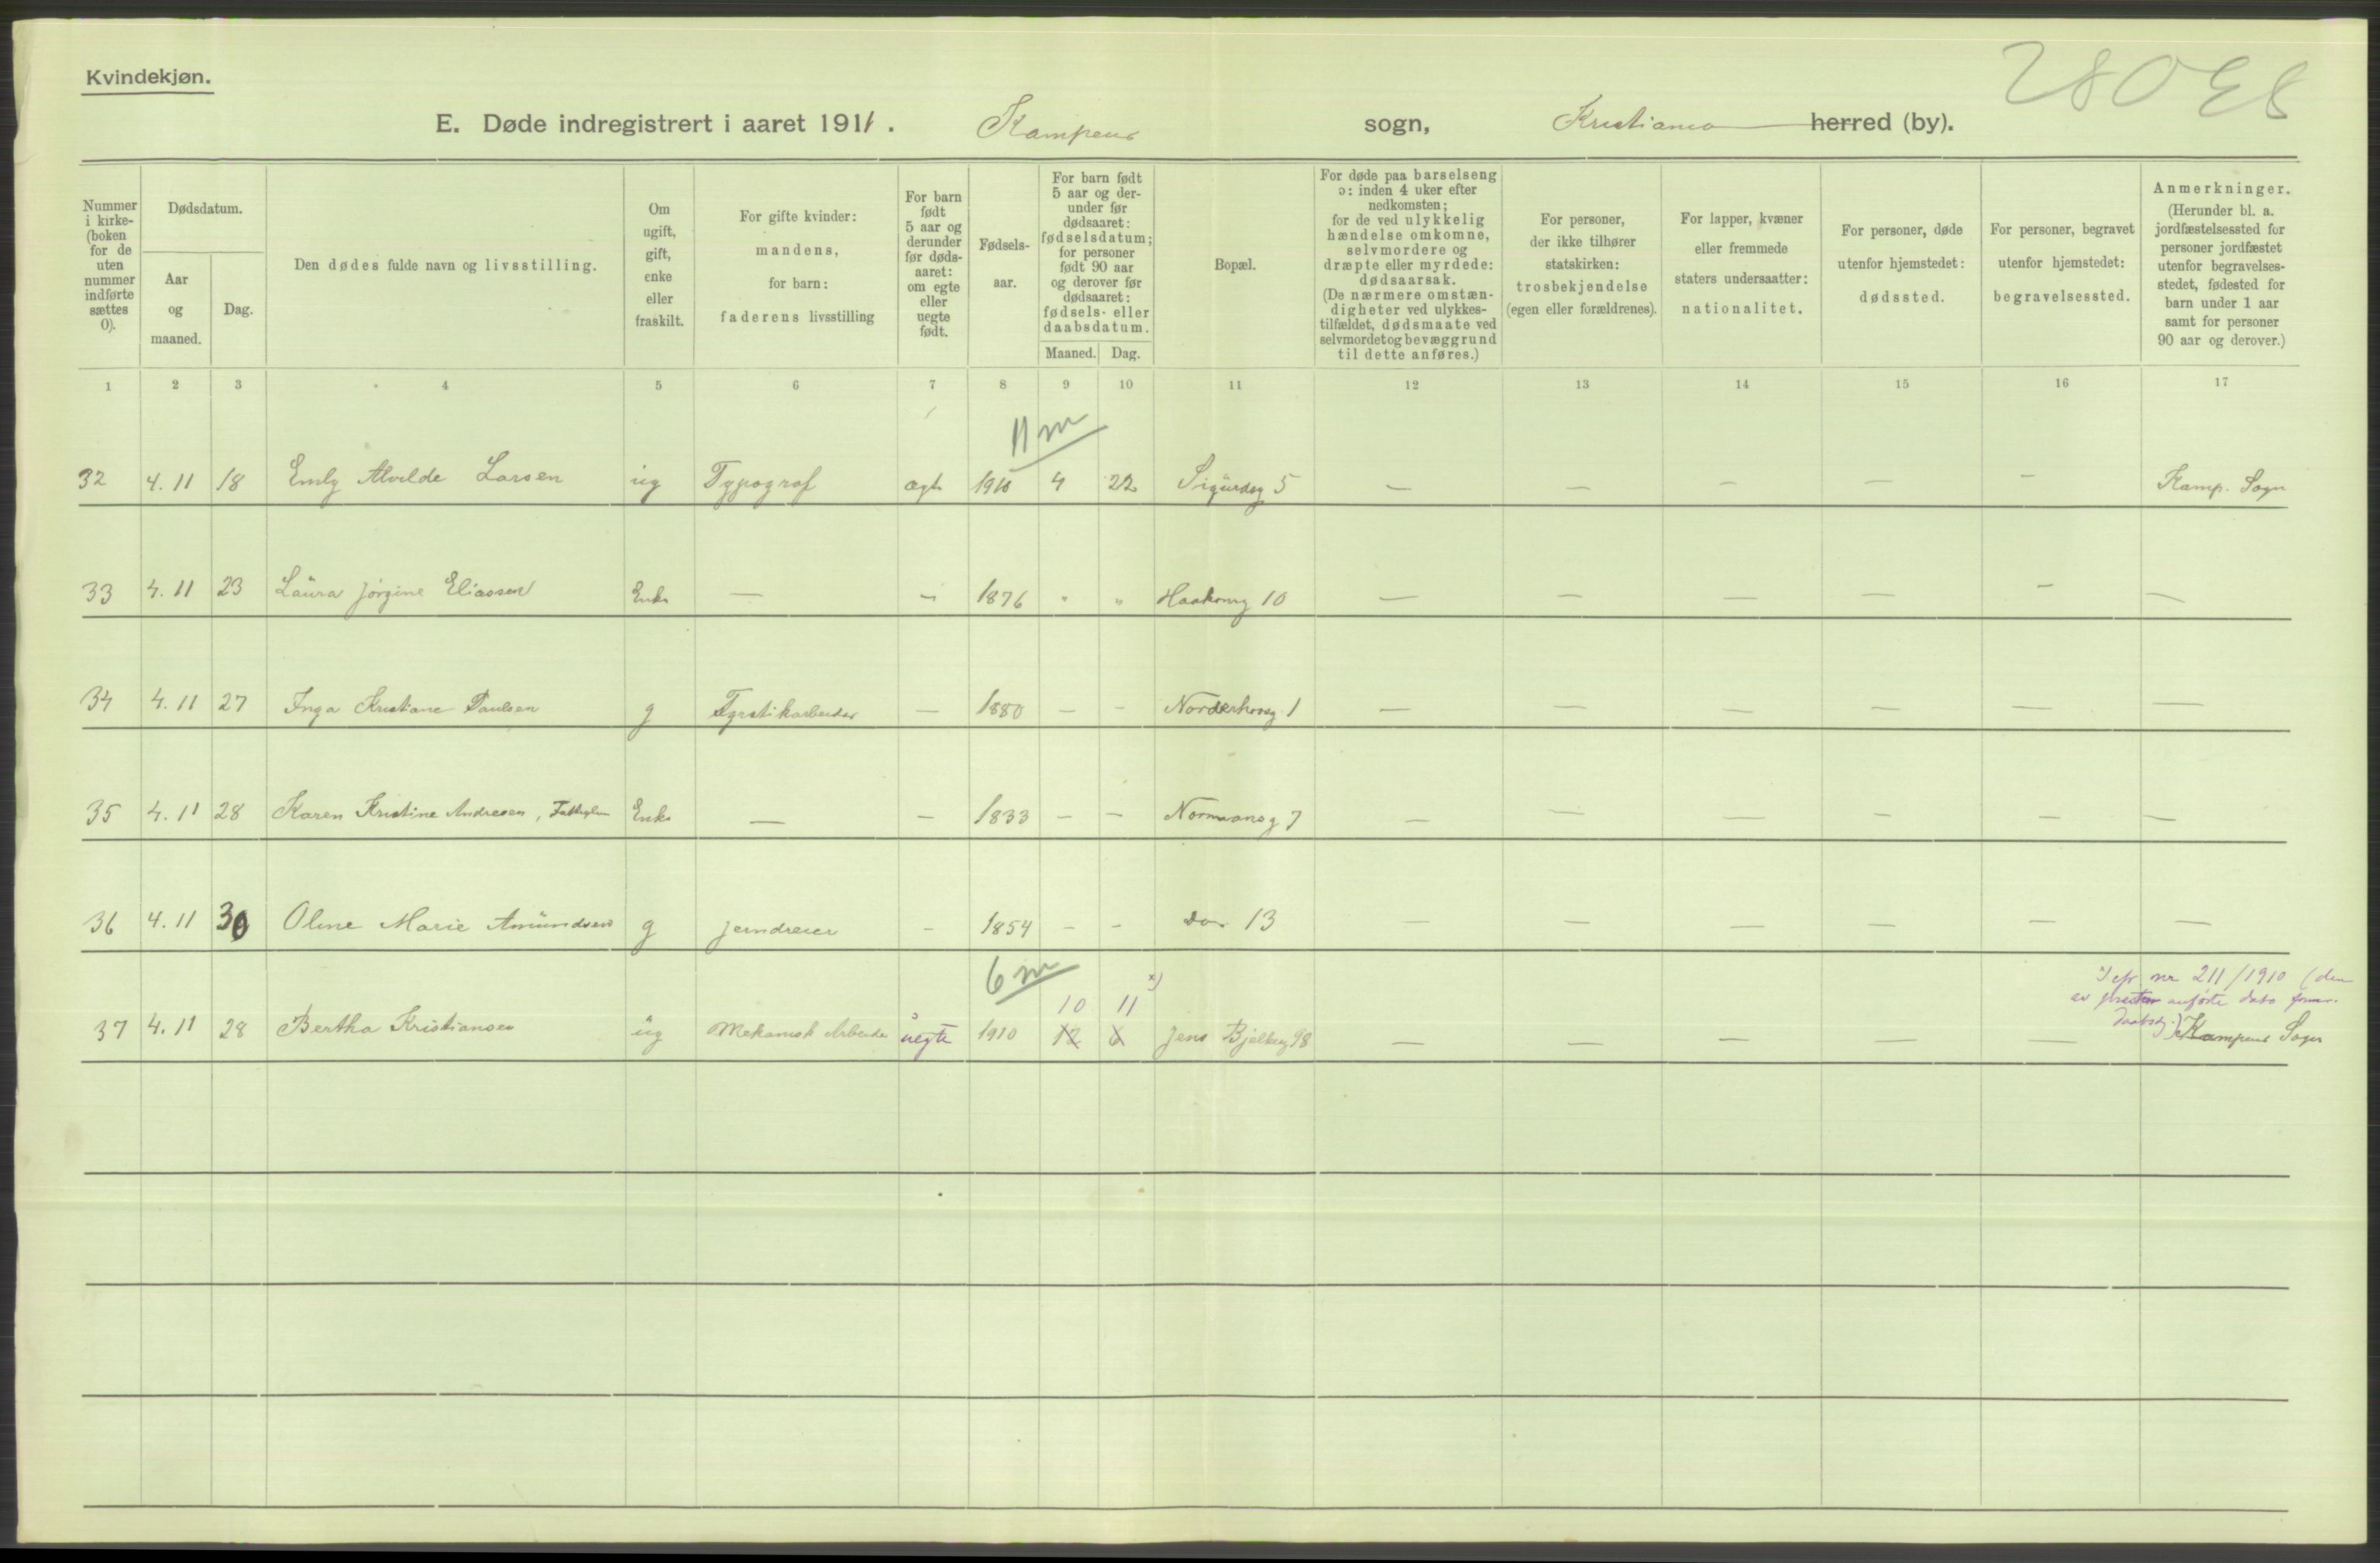 Kvindekjøn.
E. Døde indregistrert i aaret 1911. Kampens sogn, Kristiania herred (by).
Nummer i kirke-(boken for de uten nummer indførte sættes 0).
Dødsdatum.
Aar og maaned.
Dag.
Den dødes fulde navn og livsstilling.
Om ugift, gift, enke eller fraskilt.
For gifte kvinder: mandens, for barn: faderens livsstilling
For barn født 5 aar og derunder før døds-aaret: om egte eller uegte født.
Fødsels-aar.
For barn født 5 aar og der-under før dødsaaret: fødselsdatum; for personer født 90 aar og derover før dødsaaret: fødsels- eller daabsdatum.
Maaned. Dag.
Bopæl.
For døde paa barselseng ɔ: inden 4 uker efter nedkomsten; for de ved ulykkelig hændelse omkomne, selvmordere og dræpte eller myrdede: dødsaarsak. (De nærmere omstæn-digheter ved ulykkes-tilfældet, dødsmaate ved selvmordet og bevæggrund til dette anføres.)
For personer, der ikke tilhører statskirken: trosbekjendelse (egen eller forældrenes).
For lapper, kvæner eller fremmede staters undersaatter: nationalitet.
For personer, døde utenfor hjemstedet: dødssted.
For personer, begravet utenfor hjemstedet: begravelsessted.
Anmerkninger. (Herunder bl. a. jordfæstelsessted for personer jordfæstet utenfor begravelses-stedet, fødested for barn under 1 aar samt for personer 90 aar og derover.)
1 2 3 4 5 6 7 8 9 10 11 12 13 14 15 16 17
11 m
32 4.11 18 Emly Alvilde Larsen ug Typograf ægte 1910 4 22 Sigurdsg 5 — — — — — Kamp. Sogn
33 4.11 23 Laura Jørgine Eliassen Enke — — 1876 " " Haakonsg 10 — — — — — —
34 4.11 27 Inga Kristiane Paulsen g Fyrstikarbeider — 1880 — — Norderhovsg 1 — — — — — —
35 4.11 28 Karen Kristine Andresen, Enke — — 1833 — — Normansg 7 — — — — — —
36 4.11 30 Oline Marie Amundsen g Jerndreier - 1854 - - do 13 — — — — — —
6 m
10 11 x)
37 4.11 28 Bertha Kristiansen ug Mekanisk Arbeider uegte 1910 12 6 Jens Bjelkesg 98 — — — — —
nr 211/1910 (den
av presten anførte dato
Kampens Sogn